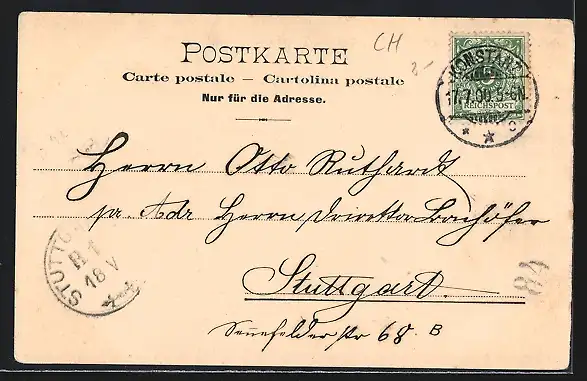 CH
3-
POSTKARTE
Carte postale – Cartolina postale
Nur für die Adresse.
KONSTANZ
17.7.00.5-6N.
* c
REICHSPOST
Herrn Otto Ruthardt
pr. Adr Herrn Direktor Bachöfer
Stuttgart.
Sennefelder str 68. B
STUTTG
18 V
84